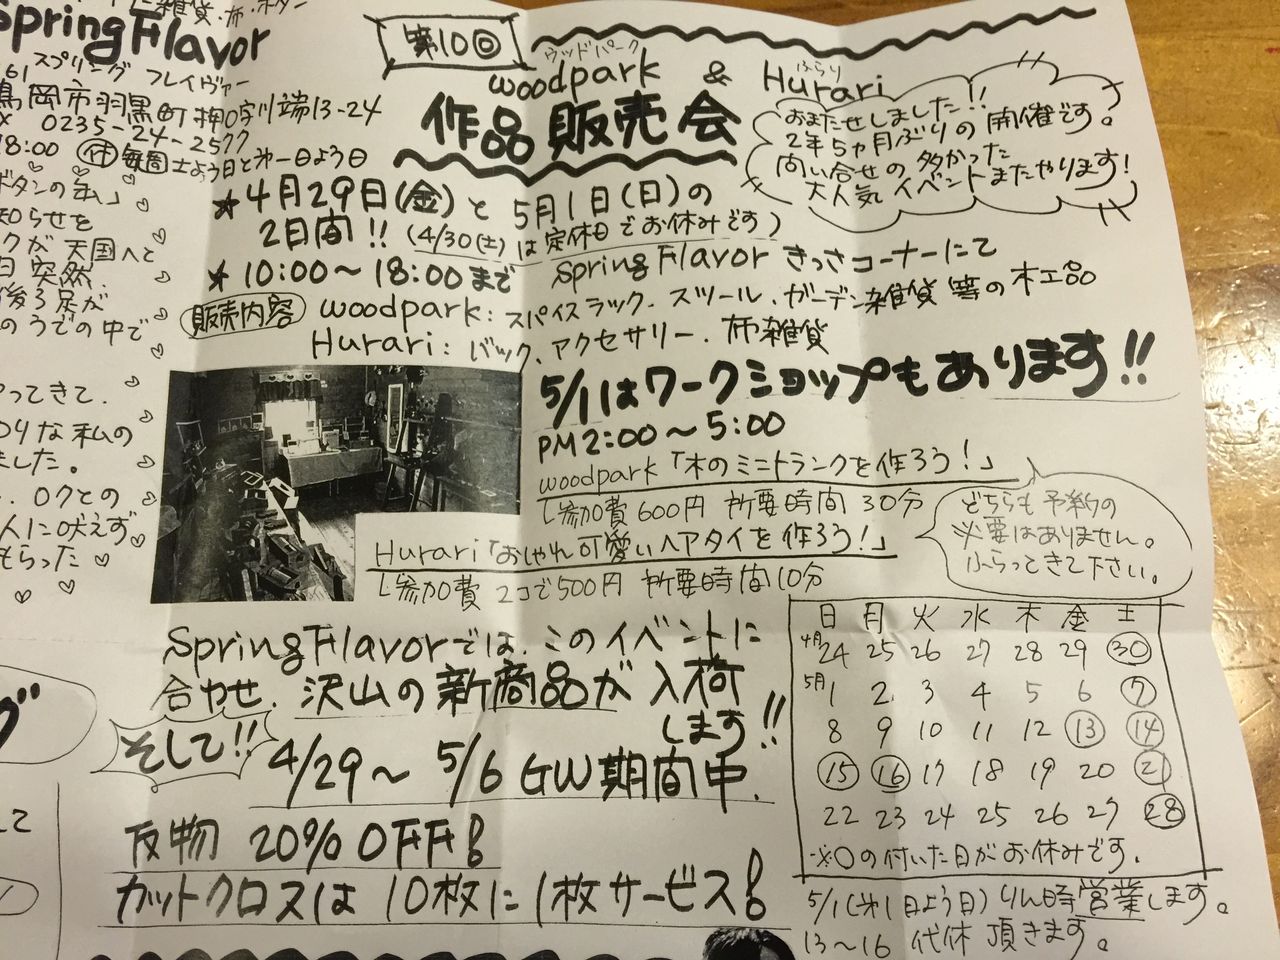 雑貨・布・ボタン
Spring Flavor
スプリング フレイヴァー
鳥岡市羽黒町押口字川端13-24
0235-24-2577
18:00 休 毎週土よう日と第一日よう日
ボタンの私」
知らせを
クが天国へと
日 突然、
後ろ足が
のうでの中で
やってきて、
りな私の
ました。
、ロクとの
人に吠えず
もらった
第10回
ウッドパーク ふらり
woodpark & Hurari
作品販売会
おまたせしました!!
2年5ヶ月ぶりの開催です。
問い合せの多かった
大人気イベントまたやります!
★4月29日(金)と5月1日(日)の
2日間!! (4/30(土)は定休日でお休みです)
★10:00〜18:00まで
Spring Flavor きっさコーナーにて
販売内容 woodpark:スパイスラック、スツール、ガーデン雑貨等の木工品
Hurari:バック、アクセサリー、布雑貨
5/1はワークショップもあります!!
PM2:00〜5:00
woodpark「木のミニトランクを作ろう!」
└参加費600円 所要時間30分
Hurari「おしゃれ可愛いヘアタイを作ろう!」
└参加費 2コで500円 所要時間10分
どちらも予約の
必要はありません。
ふらってきて下さい。
Spring Flavorでは、このイベントに
合わせ、沢山の新商品が入荷
します!!
そして!!
4/29〜5/6 GW期間中、
反物 20%OFF!
カットクロスは10枚に1枚サービス!
日 月 火 水 木 金 土
4月 24 25 26 27 28 29 30
5月 1 2 3 4 5 6 7
8 9 10 11 12 13 14
15 16 17 18 19 20 21
22 23 24 25 26 27 28
※○の付いた日がお休みです。
5/1(第1日よう日)りん時営業します。
13〜16 代休頂きます。